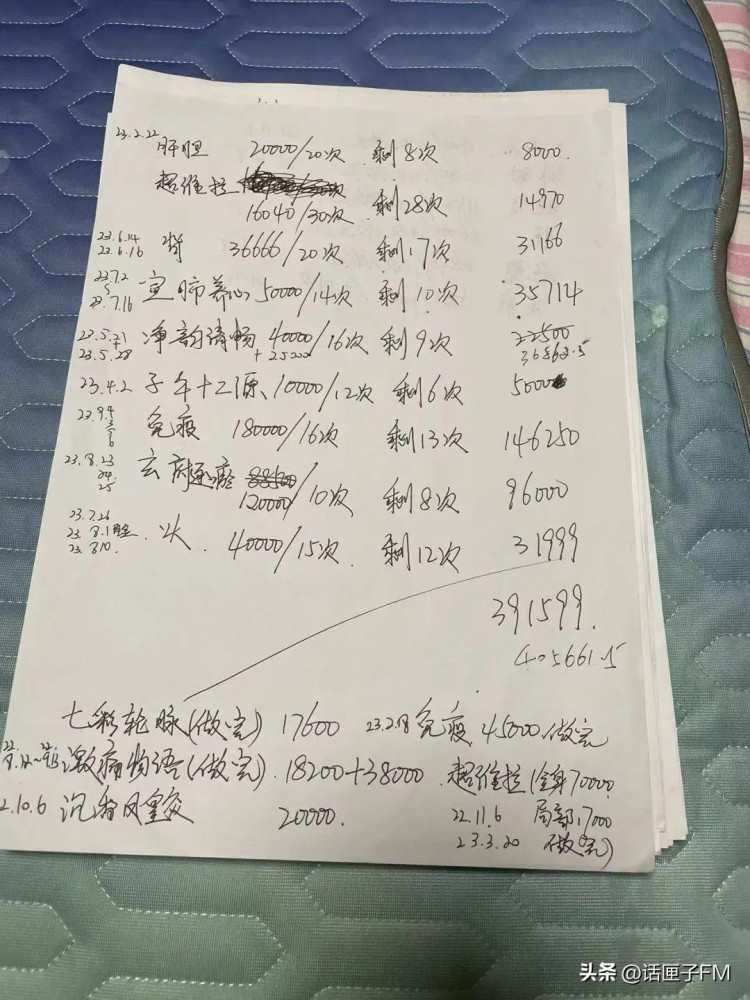 23.2.22 肝胆 20000/20次 剩8次 8000.
超维拉
16040/30次 剩28次 14970
23.6.14
23.6.16 肾 36666/20次 剩17次 31166
23.7.2
23.7.16 宣肺养心 50000/14次 剩10次 35714
23.5.21
23.5.28 净韵清畅 40000/16次 剩9次 22500
+25000 36562.5
23.4.2 子午十二源 10000/12次 剩6次 5000
23.9.4
5
6 免疫 180000/16次 剩13次 146250
23.8.23
24
25 玄府通瘀 88500
120000/10次 剩8次 96000
23.7.26
23.8.1
23.8.10. 火 40000/15次 剩12次 31999
391599.
405661.5
七彩轮脉(做完) 17600 23.2.18 免疫 45000.做完
激病物语(做完). 18200+38000 超维拉(全身70000
22.11.6 局部17000
2.10.6 沉香 20000.
23.3.20 做完)
头条 @话匣子FM